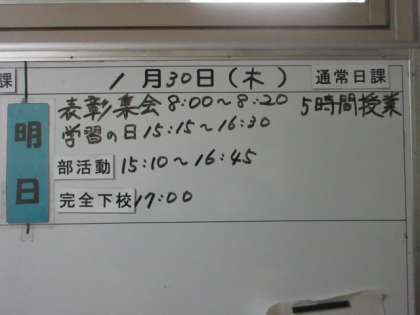 課 1月30日(木) 通常日課
明日
表彰集会 8:00～8:20 5時間授業
学習の日 15:15～16:30
部活動 15:10～16:45
完全下校 17:00